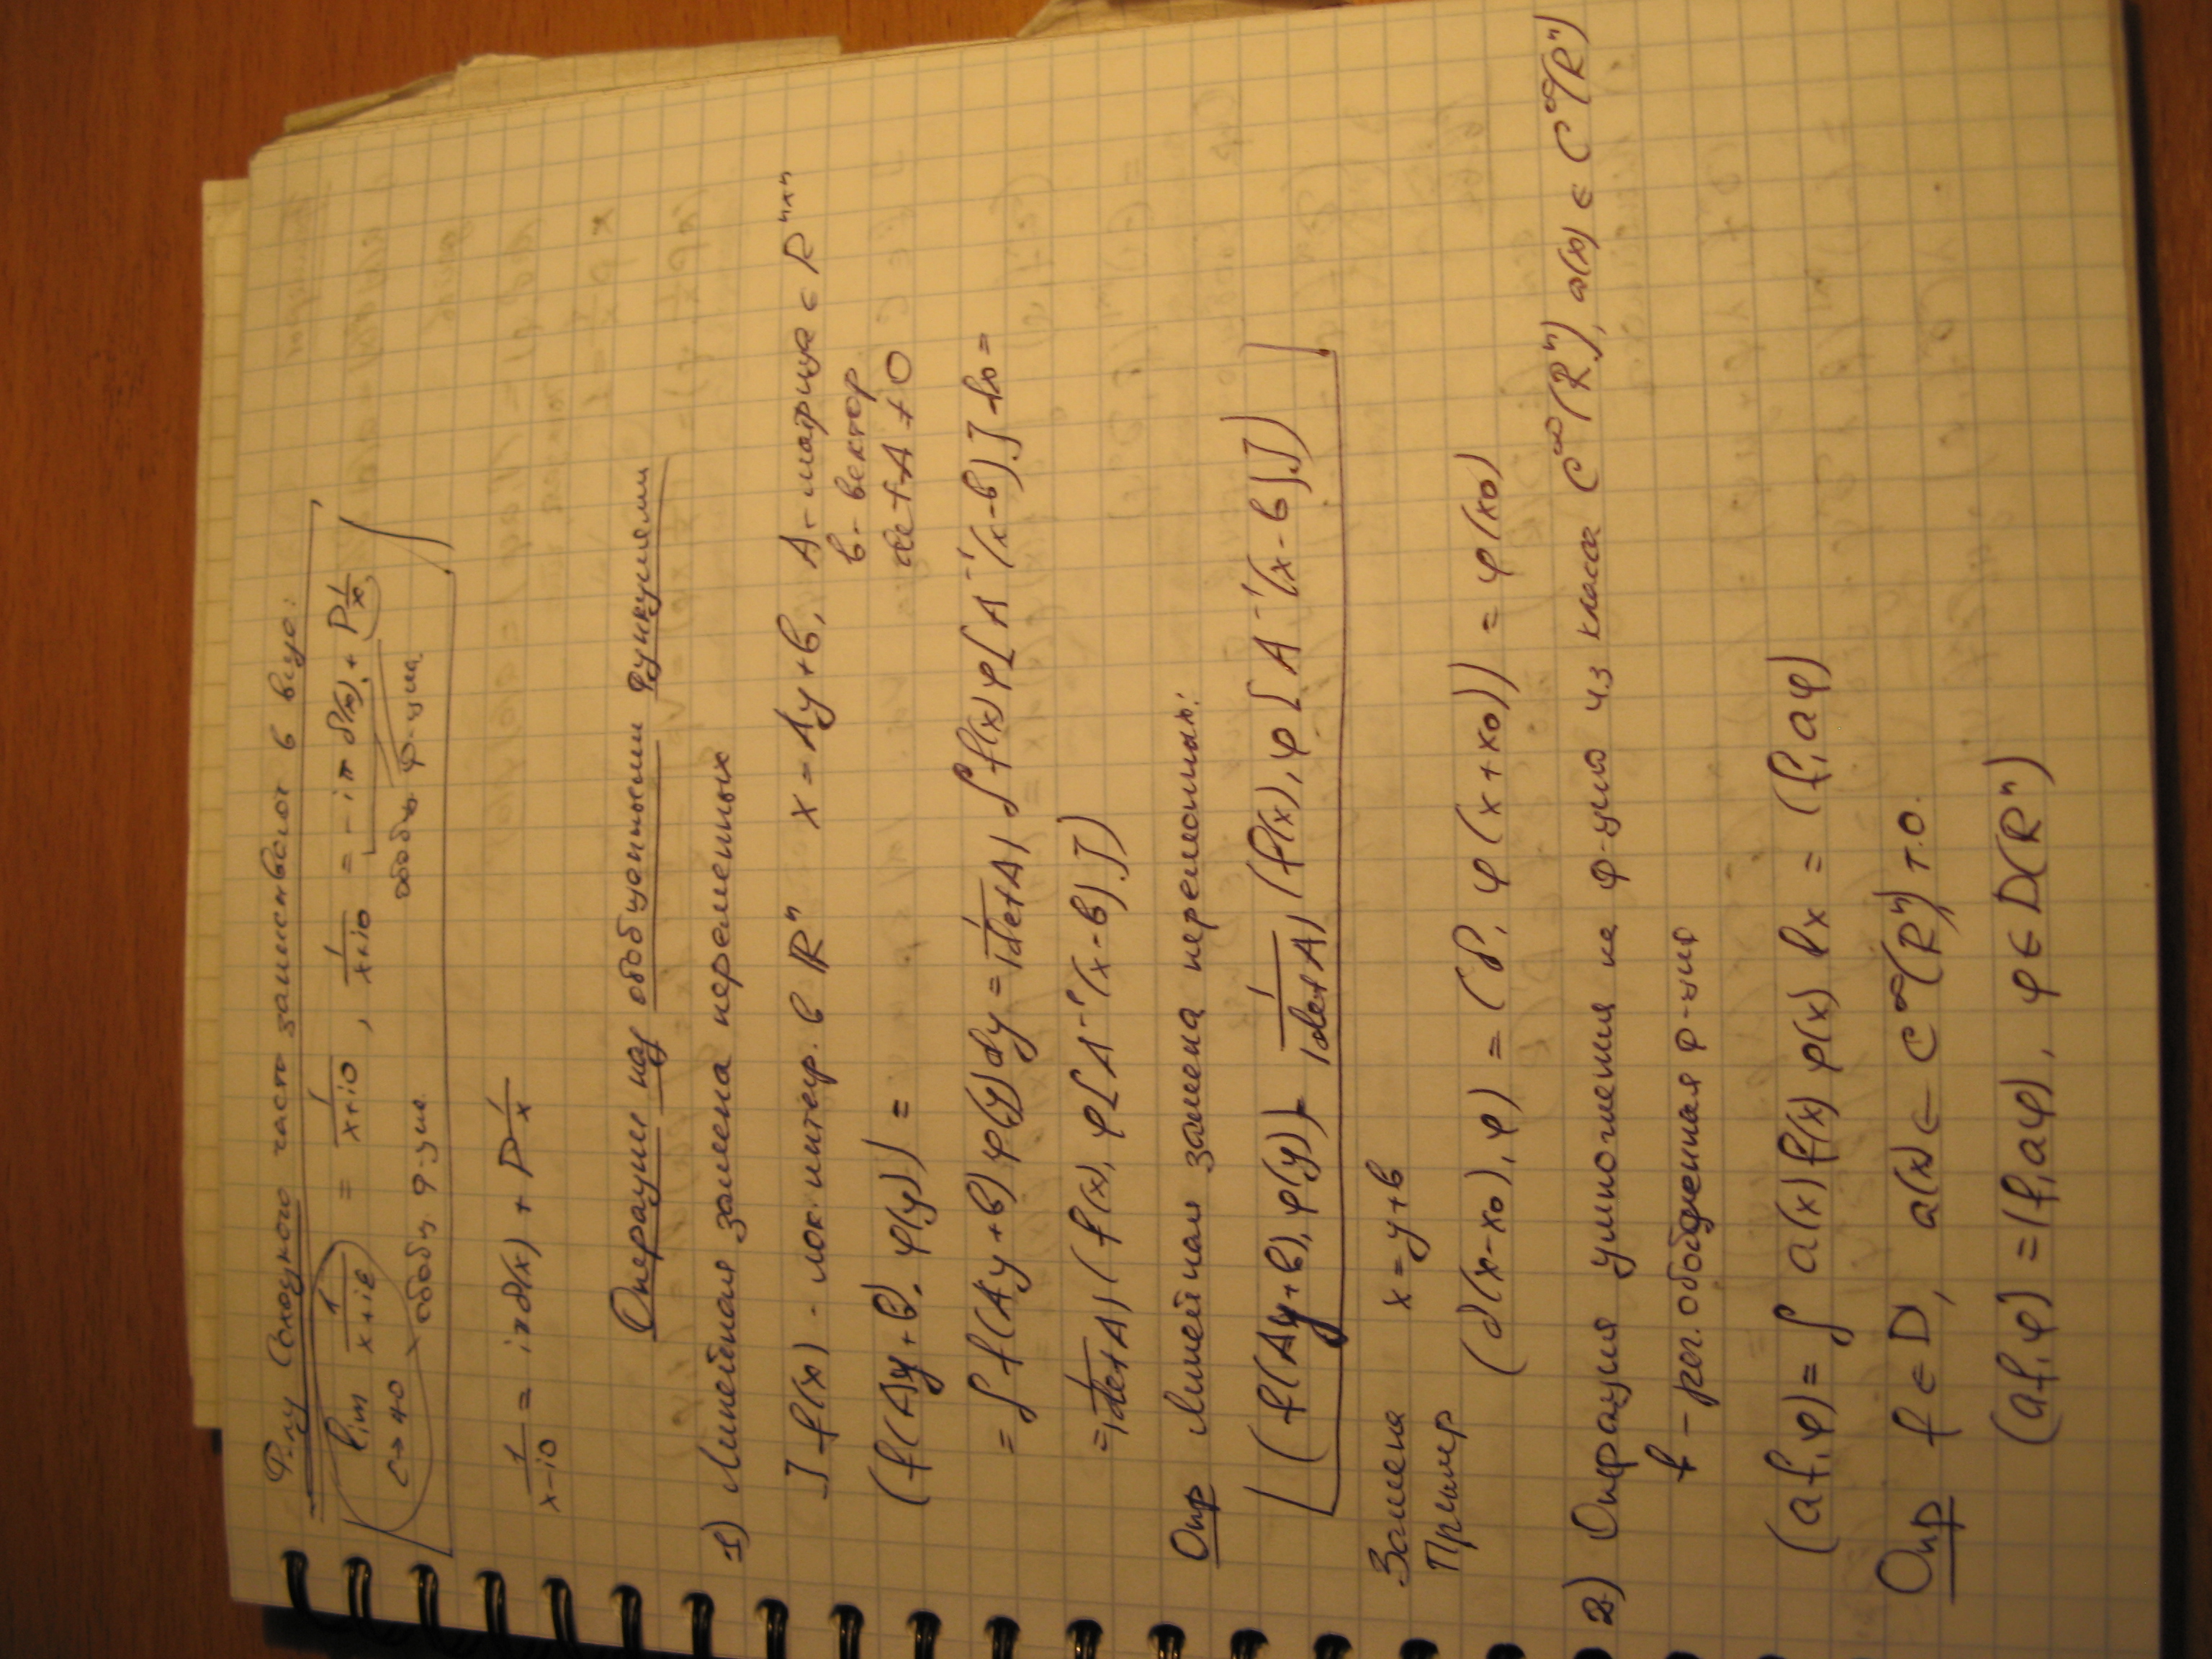 Ф-лу Сохоцкого часто записывают в виде:
lim 1/(x+iε) = 1/(x+i0) , 1/(x+i0) = -iπ δ(x) + P 1/x
ε→+0 обобщ ф-ция обобщ ф-ция
1/(x-i0) = iπδ(x) + P 1/x
Операции над обобщенными функциями
1) Линейная замена переменных
] f(x) - лок. интегр. в ℝⁿ x = Ay+b, A - матрица ∈ Rⁿˣⁿ
b - вектор
(f(Ay+b), φ(y)) = det A ≠ 0
= ∫ f(Ay+b) φ(y) dy = 1/|det A| ∫ f(x) φ[A⁻¹(x-b)] dx =
= 1/|det A| (f(x), φ[A⁻¹(x-b)])
Опр Линейная замена переменных:
(f(Ay+b), φ(y)) = 1/|det A| (f(x), φ[A⁻¹(x-b)])
Замена x = y+b
Пример (δ(x-x₀), φ) = (δ, φ(x+x₀)) = φ(x₀)
2) Операция умножения на ф-цию из класса C^∞(Rⁿ), a(x) ∈ C^∞(Rⁿ)
f - рег. обобщенная ф-ция
(af, φ) = ∫ a(x) f(x) φ(x) dx = (f, aφ)
Опр f ∈ D, a(x) ∈ C^∞(Rⁿ) т.о.
(af, φ) = (f, aφ), φ ∈ D(Rⁿ)